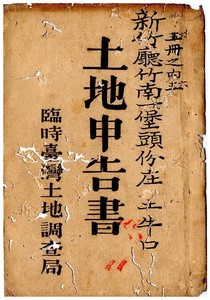 五冊之內
新竹廳竹南一堡頭份庄土牛口
土地申告書
臨時臺灣土地調查局